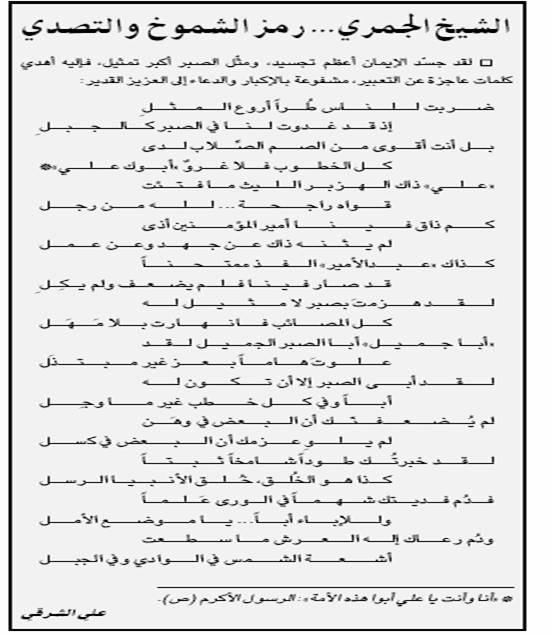 الشيخ الجمري... رمز الشموخ والتصدي
□ لقد جسّد الإيمان أعظم تجسيد، ومثّل الصبر أكبر تمثيل، فإليه أهدي
كلمات عاجزة عن التعبير، مشفوعة بالإكبار والدعاء إلى العزيز القدير:
ضربت للناس طُراً أروع المثلِ
إذ قد غدوت لنا في الصبر كالجبلِ
بل أنت أقوى من الصم الصّلاب لدى
كل الخطوب فلا غروٌ «أبوك علي»*
«علي» ذاك الهزبر الليث ما فتئت
قواه راجحة... لله من رجل
كم ذاق فينا أمير المؤمنين أذى
لم يثنه ذاك عن جهد وعن عمل
كذاك «عبدالأمير» الفذ ممتحناً
قد صار فينا فلم يضعف ولم يكِلِ
لقد هزمتَ بصبر لا مثيل له
كل المصائب فانهارت بلا مَهَل
«أبا جميل» أبا الصبر الجميل لقد
علوتَ هاماً بعز غير مبتذَل
لقد أبى الصبر إلا أن تكون له
أباً وفي كل خطب غير ما وجِل
لم يُضعفنّك أن البعض في وهَن
لم يلوِ عزمك أن البعض في كسل
لقد خبرتُك طوداً شامخاً ثبتاً
كذا هو الخُلق، خُلق الأنبيا الرسل
فدُم فديتك شهماً في الورى عَلَماً
وللإباء أباً... يا موضع الأمل
ودُم رعاك إله العرش ما سطعت
أشعة الشمس في الوادي وفي الجبل
* «أنا وأنت يا علي أبوا هذه الأمة»: الرسول الأكرم (ص).
علي الشرقي